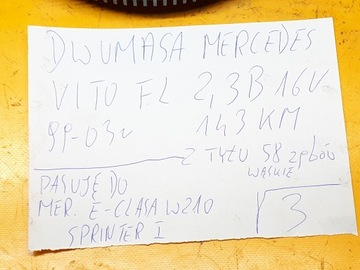 DWUMASA MERCEDES
VITO FL 2,3B 16V
99-03r 143 KM
Z TYŁU 58 zębów
WĄSKIE
PASUJĘ DO
MER. E-CLASA W210
SPRINTER I
3